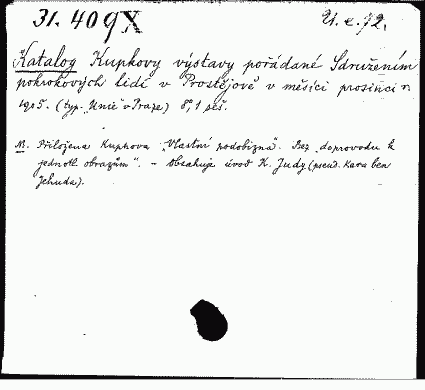 31.409X 21.c.72.
Katalog Kupkovy výstavy pořádané Sdružením
pokrokových lidí v Prostějově v měsíci prosinci r.
1905. (typ. "Unie" v Praze) 8°, 1 seš.
N. Přiložena Kupkova "Vlastní podobizna". Bez "doprovodu k
jednotl. obrazům". – Obsahuje úvod K. Judy (pseud. Kara ben
Jehuda).